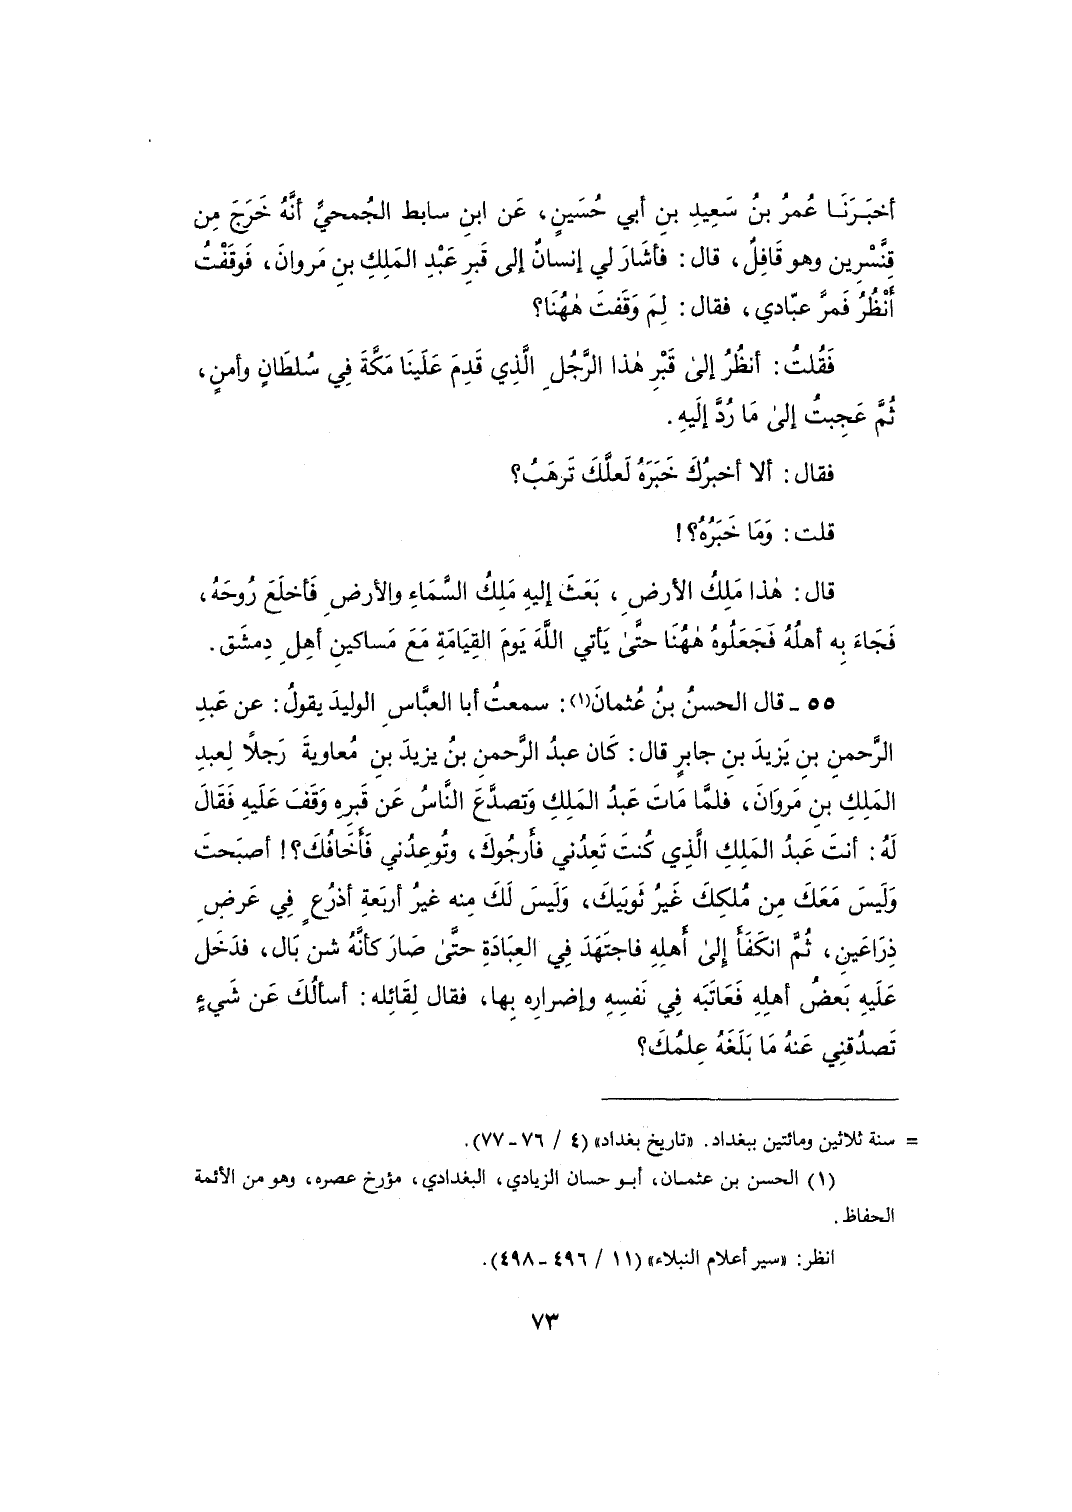 أخبَرَنَا عُمرُ بنُ سَعِيدِ بنِ أبي حُسَينٍ، عَن ابنِ سابط الجُمحيِّ أنَّهُ خَرَجَ مِن
قِنَّسْرِين وهو قَافِلٌ، قال: فأشَارَ لي إنسانٌ إلى قَبرِ عَبْدِ المَلِكِ بنِ مَروانَ، فَوقَفْتُ
أَنْظُرُ فَمرَّ عبّادي، فقال: لِمَ وَقَفتَ هٰهُنَا؟
فَقُلتُ: أنظُرُ إلىٰ قَبْرِ هٰذا الرَّجُلِ الَّذِي قَدِمَ عَلَينَا مَكَّةَ فِي سُلطَانٍ وأمنٍ،
ثُمَّ عَجِبتُ إلىٰ مَا رُدَّ إلَيهِ.
فقال: ألا أخبرُكَ خَبَرَهُ لَعلَّكَ تَرهَبُ؟
قلت: وَمَا خَبَرُهُ؟!
قال: هٰذا مَلِكُ الأرضِ، بَعَثَ إليهِ مَلِكُ السَّمَاءِ والأرضِ فَأخلَعَ رُوحَهُ،
فَجَاءَ بِه أهلُهُ فَجَعَلُوهُ هٰهُنَا حتَّىٰ يَأتي اللَّهَ يَومَ القِيَامَةِ مَعَ مَساكينِ أهلِ دِمشَق.
٥٥ ـ قال الحسنُ بنُ عُثمانَ(١): سمعتُ أبا العبَّاسِ الوليدَ يقولُ: عن عَبدِ
الرَّحمنِ بن يَزيدَ بنِ جابرٍ قال: كَان عبدُ الرَّحمنِ بنُ يزيدَ بن مُعاويةَ رَجلًا لِعبدِ
المَلِكِ بنِ مَروَانَ، فلمَّا مَاتَ عَبدُ المَلكِ وَتصدَّعَ النَّاسُ عَن قَبرِهِ وَقَفَ عَلَيهِ فَقَالَ
لَهُ: أنتَ عَبدُ المَلِكِ الَّذِي كُنتَ تَعِدُني فأَرجُوكَ، وتُوعِدُني فَأَخَافُكَ؟! أصبَحتَ
وَلَيسَ مَعَكَ مِن مُلكِكَ غَيرُ ثَوبَيكَ، وَلَيسَ لَكَ مِنه غيرُ أربَعةِ أذرُعٍ فِي عَرضِ
ذِرَاعَينِ، ثُمَّ انكَفَأَ إِلىٰ أَهلِهِ فاجتَهَدَ فِي العِبَادَةِ حتَّىٰ صَارَ كأنَّهُ شن بَال، فدَخَل
عَلَيهِ بَعضُ أهلِهِ فَعَاتَبَه فِي نَفسِهِ وإضرارِه بِها، فقال لِقَائله: أسألُكَ عَن شَيءٍ
تَصدُقنِي عَنهُ مَا بَلَغَهُ عِلمُكَ؟
= سنة ثلاثين ومائتين ببغداد. «تاريخ بغداد» (٤ / ٧٦ - ٧٧).
(١) الحسن بن عثمان، أبو حسان الزيادي، البغدادي، مؤرخ عصره، وهو من الأئمة
الحفاظ.
انظر: «سير أعلام النبلاء» (١١ / ٤٩٦ - ٤٩٨).
٧٣